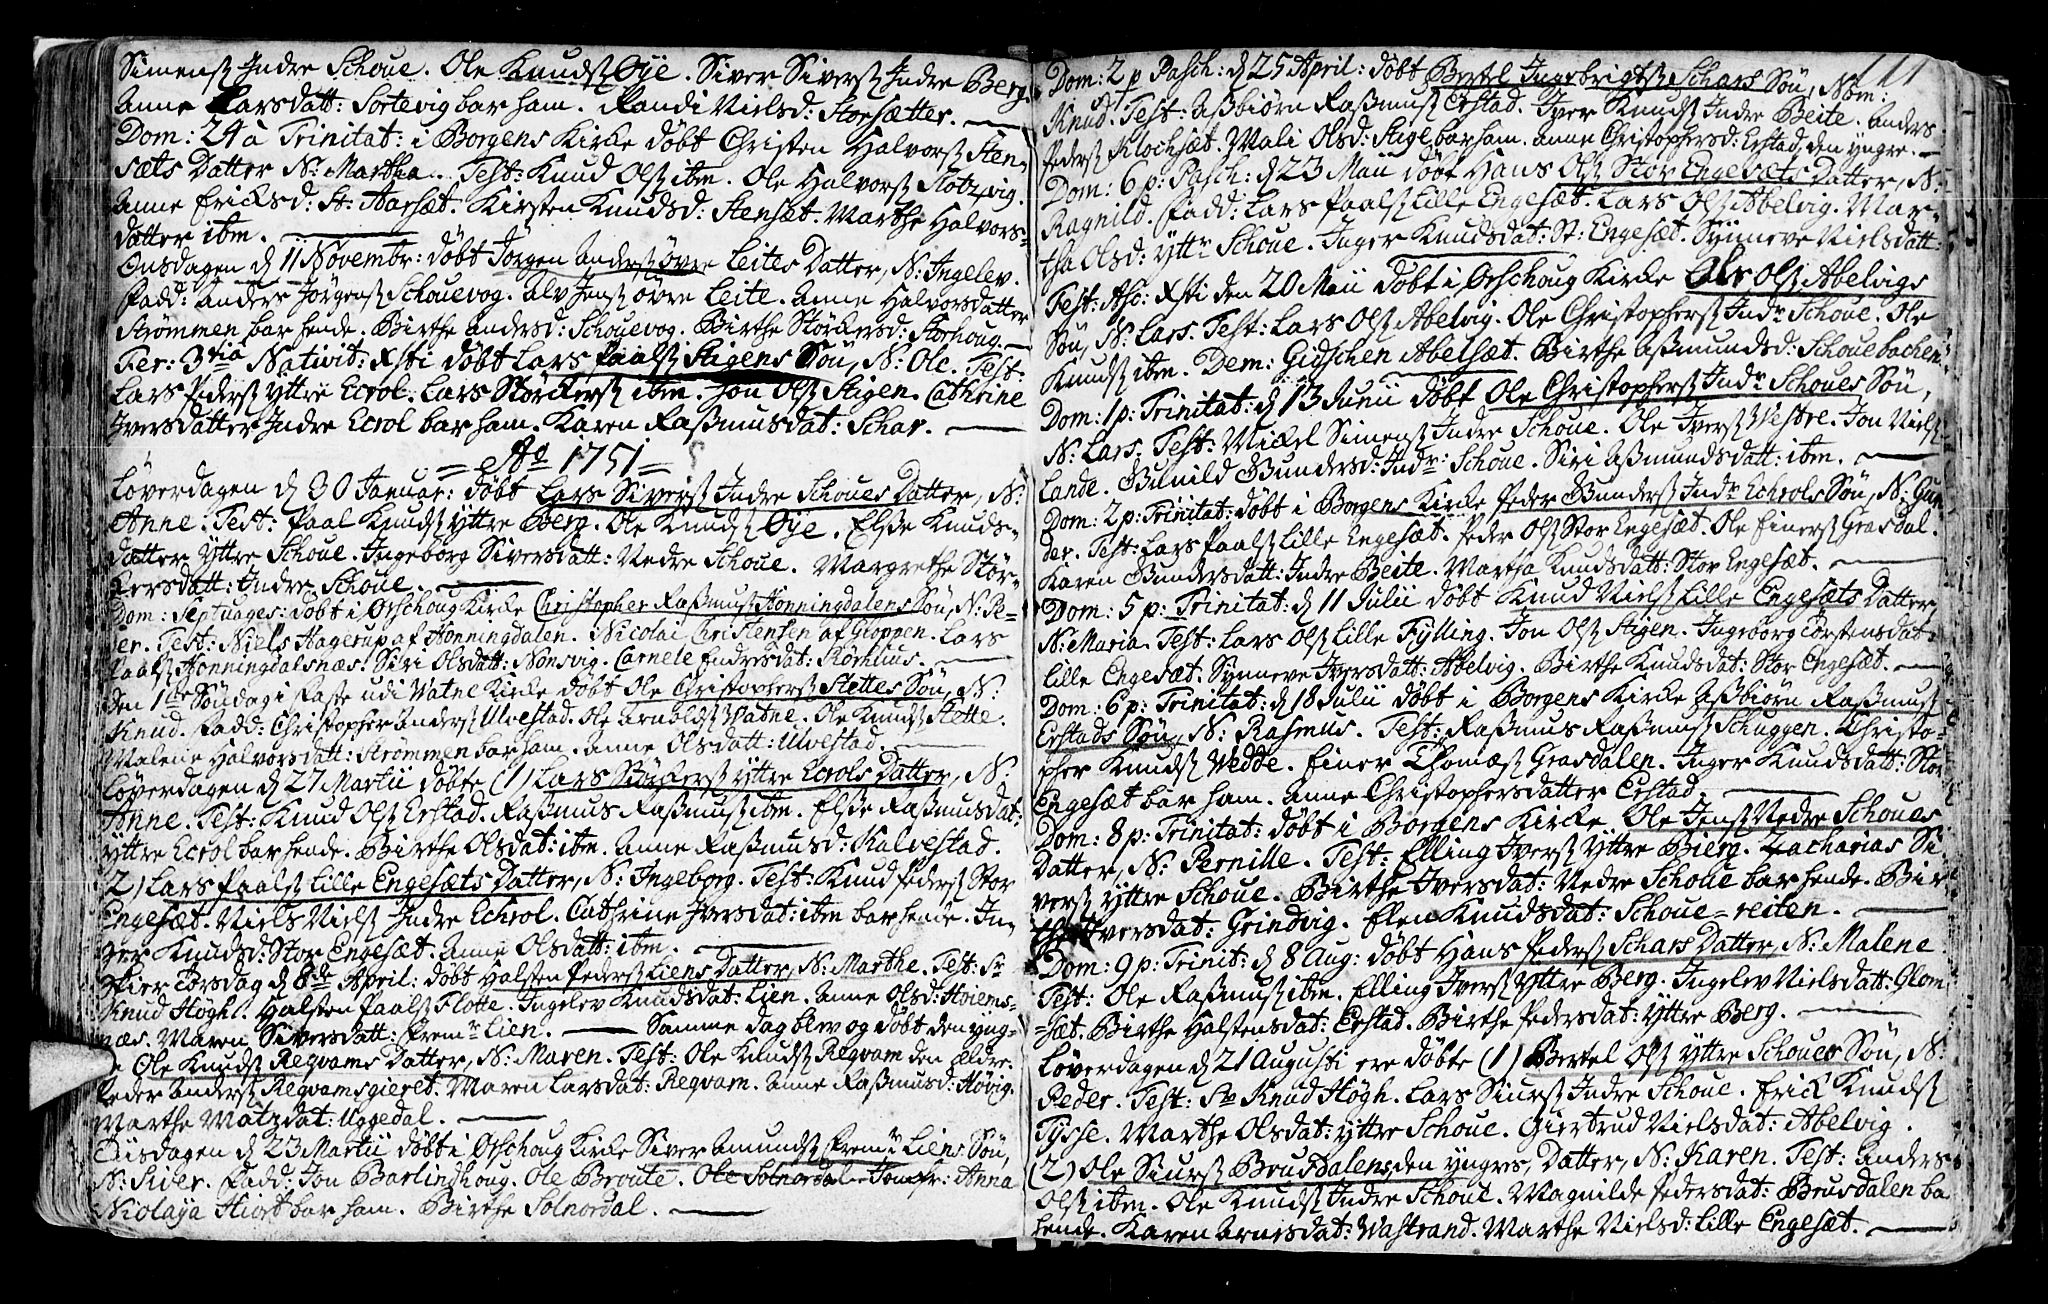 Simensß Indre Schoue. Ole Knudsß Øye. Siver Siversß Indre Berg.
Anne Larsdatt: Sortevig bar ham. Randi Nielsd: Storsætter.
Dom: 24 à Trinitat: i Borgens Kirke døbt Christen Halvorsß Sten-
sæts Datter N: Martha. Test: Knud Olsß ibm. Ole Halvorsß Flotzvig.
Anne Ericksd: St: Aarsæt. Kirsten Knudsd: Stensæt. Marthe Halvors-
datter ibm.
Onsdagen d 11 Novembr: døbt Jørgen Andersß øvre Leites Datter, N: Ingelev.
Fadd: Anders Jørgensß Schouevog. Alv Jensß øvre Leite. Anne Halvorsdatter
Strømmen bar hende. Birthe Andersd: Schouevog. Birthe Størkersd: Storhoug.
Fer: 3tia Nativit: Xsti døbt Lars Paalsß Stigens Søn, N: Ole. Test:
Lars Pedersß yttre Ecrol. Lars Størckersß ibm. Jon Olsß Stigen. Cathrine
Iversdatter Indre Ecrol bar ham. Karen Raßmusdat: Schar.
= Ao 1751 =
Løverdagen d 30 Januar: døbt Lars Siversß Indre Schoues Datter, N:
Anne. Test: Paal Knudsß yttre Berg. Ole Knudsß Øye. Elße Knuds-
datter yttre Schoue. Ingeborg Siversdatt: Nedre Schoue. Margrethe Stør-
kersdatt: Indre Schoue.
Dom: Septuages: døbt i Ørschoug Kirke Christopher Raßmusß Honningdalens Søn, N: Pe-
der. Test: Niels Hagerup af Honningdalen. Nicolai Christensen af Gloppen. Lars
Paalsß Honningdalsnæs. Siri Olsdatt: Nonsvig. Carnele Endresdat: Rømhuus.
Den 1te Søndag i Faste udi Vatne Kirke døbt Ole Christophersß Stettes Søn, N:
Knud. Fadd: Christopher Andersß Ulvestad. Ole Arnoldsß Vatne. Ole Knudsß Stette.
Malene Halvorsdatt: Strømmen bar ham. Anne Olsdatt: Ulvestad.
Løverdagen d 27 Martii døbte (1) Lars Størkersß yttre Ecrols Datter, N:
Anne. Test: Knud Olsß Erstad. Raßmus Raßmusß ibm. Elße Raßmusdat:
yttre Ecrol bar hende. Birthe Olsdat: ibm. Anne Raßmusd: Kalvestad.
2) Lars Paalsß Lille Engesæts Datter, N: Ingeborg. Test: Knud Pedersß Stor
Engesæt. Niels Nielsß Indre Echrol. Cathrine Iversdat: ibm bar hende. In-
ger Knudsd: Stor Engesæt. Anne Olsdatt: ibm.
Skier Torsdag d 8de April: døbt Halsten Pedersß Liens Datter, N: Marthe. Test: Sr
Knud Høgh. Halsten Paalsß Flotte. Ingelev Knudsdat: Lien. Anne Olsd: Hoiems-
næs. Maren Siversdatt: Frem: Lien. Samme dag blev og døbt den yng-
Ole Knudsß Reqvams Datter, N: Maren. Test: Ole Knudsß Reqvam den ældre.
Peder Andersß Reqvamsgieret. Maren Larsdat: Reqvam. Anne Raßmusd: Høvig.
Marthe Matzdat: Uggedal.
Tiisdagen d 23 Martii døbt i Ørschoug Kirke Siver Amundsß Frem: Liens Søn,
N: Sider. Fadd: Jon Barlindhoug. Ole Broute. Ole Solnordal. Jomfr: Anna
Nicolaja Hiort bar ham. Birthe Solnordal.
111
Dom: 2 p Pasch: d 25 April: døbt Bertel Ingebrigtsß Schars Søn, Nom:
Knud. Test: Aßbiørn Raßmusß Erstad. Iver Knudsß Indre Beite. Anders
Pedersß Klochsæt. Mali Olsd: Stige bar ham. Anne Christophersd: Erstad, den yngre.
Dom: 6 p: Pasch: d 23 Maii døbt Hans Olsß Stor Engesæts Datter, N:
Ragnild. Fadd: Lars Paalsß Lille Engesæt. Lars Olsß Abelvig. Mar-
tha Olsd: yttr Schoue. Inger Knudsdat: St: Engesæt. Synneve Nielsdatt:
Fest: Asc: Xsti den 20 Maii døbt i Ørschoug Kirke Ole Olsß Abelvigs
Søn, N: Lars. Test: Lars Olsß Abelvig. Ole Christophersß Indr Schoue. Ole
Knudsß ibm. Dem: Gidschen Abelsæt. Birthe Aßmundsd: Schouebachen.
Dom: 1 p: Trinitat: d 13 Junii døbt Ole Christophersß Indr Schoues Søn,
N: Lars. Test: Mickel Simensß Indre Schoue. Ole Iversß Westre. Jon Nielsß
Lande. Gunild Gundersd: Indr: Schoue. Siri Aßmundsdatt: ibm.
Dom: 2 p: Trinitat: døbt i Borgens Kirke Peder Gundersß Indr Echrols Søn, N: Gun-
der. Test: Lars Paalsß Lille Engesæt. Peder Olsß Stor Engesæt. Ole Einersß Grasdal.
Karen Gundersdatt: Indre Beite. Martha Knudsdatt: Stor Engesæt.
Dom: 5 p: Trinitat: d 11 Julii døbt Knud Nielsß Lille Engesæts Datter,
N: Maria. Test: Lars Olsß Lille Fylling. Jon Olsß Stigen. Ingeborg Torstensdat:
Lille Engesæt. Synneve Iversdatt: Abelvig. Birthe Knudsdat: Stor Engesæt.
Dom: 6 p: Trinitat: d 18 Julii døbt i Borgens Kirke Aßbiørn Raßmusß
Erstads Søn, N: Rasmus. Test: Raßmus Raßmusß Schuggen. Christo-
pher Knudsß Vedde. Einer Thomæsß Grasdalen. Inger Knudsdatt: Stor
Engesæt bar ham. Anne Christophersdatter Erstad.
Dom: 8 p: Trinitat: døbt i Borgens Kirke Ole Jensß Nedre Schoues
Datter, N: Pernille. Test: Elling Iversß Yttre Bierg. Zacharias Si-
versß yttre Schoue. Birthe Iversdat: Nedre Schoue bar hende. Bir-
the Iversdat: Grindvig. Elen Knudsdat: Schoue=reiten.
Dom: 9 p: Trinit: d 8 Aug: døbt Hans Pedersß Schars Datter, N: Malene
Test: Ole Raßmusß ibm. Elling Iversß Yttre Berg. Ingelev Nielsdatt: Glom-
=sæt. Birthe Halstensdat: Erstad. Birthe Pedersdat: Yttre Berg.
Løverdagen d 21 Augusti ere døbte (1) Bertel Olsß yttre Schoues Søn, N:
Peder. Test: Sr Knud Høgh. Lars Siursß Indre Schoue. Erick Knudsß
Tysse. Marthe Olsdat: yttre Schoue. Giertrud Nielsdat: Abelvig.
(2) Ole Siursß Brusdalens, den yngres, Datter, N: Karen. Test: Anders
Olsß ibm. Ole Knudsß Indre Schoue. Magnilde Pedersdat: Brusdalen bar
hende. Karen Arnesdat: Wastrand. Marthe Nielsd: Lille Engesæt.